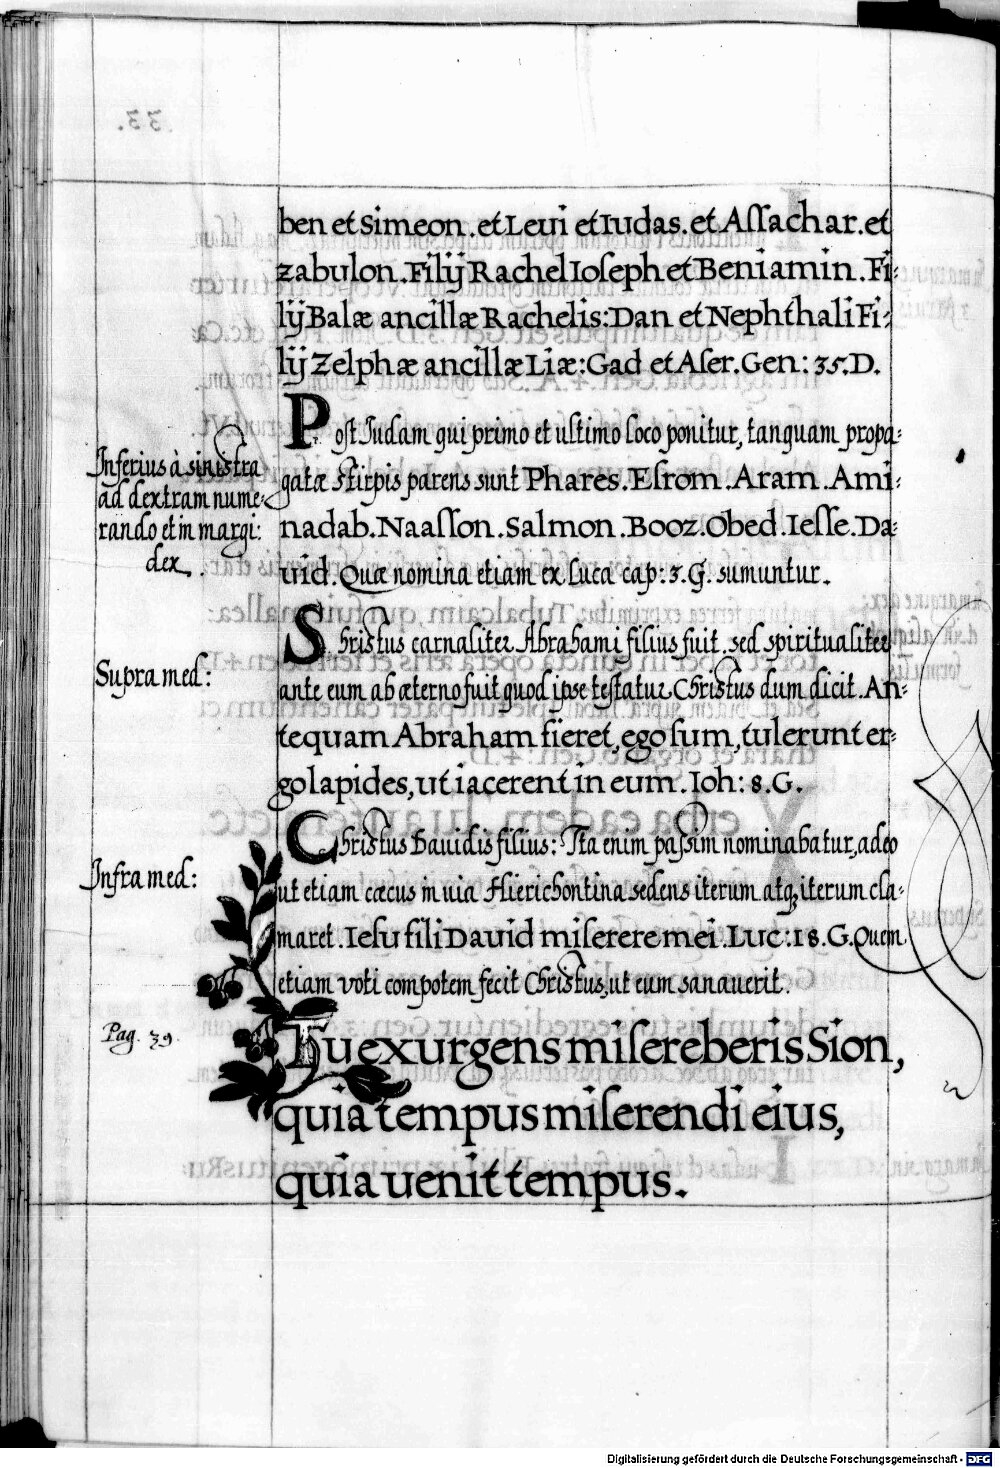 ben et Simeon. et Leui et Iudas. et Aſſachar. et
zabulon. Filij Rachel Ioseph et Beniamin. Fi:
lij Balæ ancillæ Rachelis: Dan et Nephthali Fi:
lij Zelphæ ancillæ Liæ: Gad et Aſer. Gen: 35. D.
Poſt Iudam qui primo et ultimo loco ponitur, tanquam propa:
gatæ stirpis parens sunt Phares. Eſrom. Aram. Ami:
nadab. Naaſſon. Salmon. Booz. Obed. Ieſſe. Da:
uid. Quæ nomina etiam ex Luca cap: 3. G. sumuntur.
Inferius à sinistra
ad dextram nume:
rando et in margi:
dex.
Christus carnaliter Abrahami filius fuit. sed spiritualiter
ante eum ab æterno fuit quod ipse testatur Christus dum dicit. An:
tequam Abraham fieret, ego ſum, tulerunt er:
go lapides, ut iacerent in eum. Ioh: 8. G.
Supra med:
Christus Dauidis filius: Ita enim paſsim nominabatur, adeo
ut etiam cæcus in uia Hierichontina sedens iterum atq; iterum cla:
maret. Ieſu fili Dauid miſerere mei. Luc: 18. G. Quem
etiam voti compotem fecit Christus, ut eum sanauerit.
Infra med:
Tu exurgens miſereberis Sion,
quia tempus miſerendi eius,
quia uenit tempus.
Pag. 39.
33.
Digitalisierung gefördert durch die Deutsche Forschungsgemeinschaft - DFG